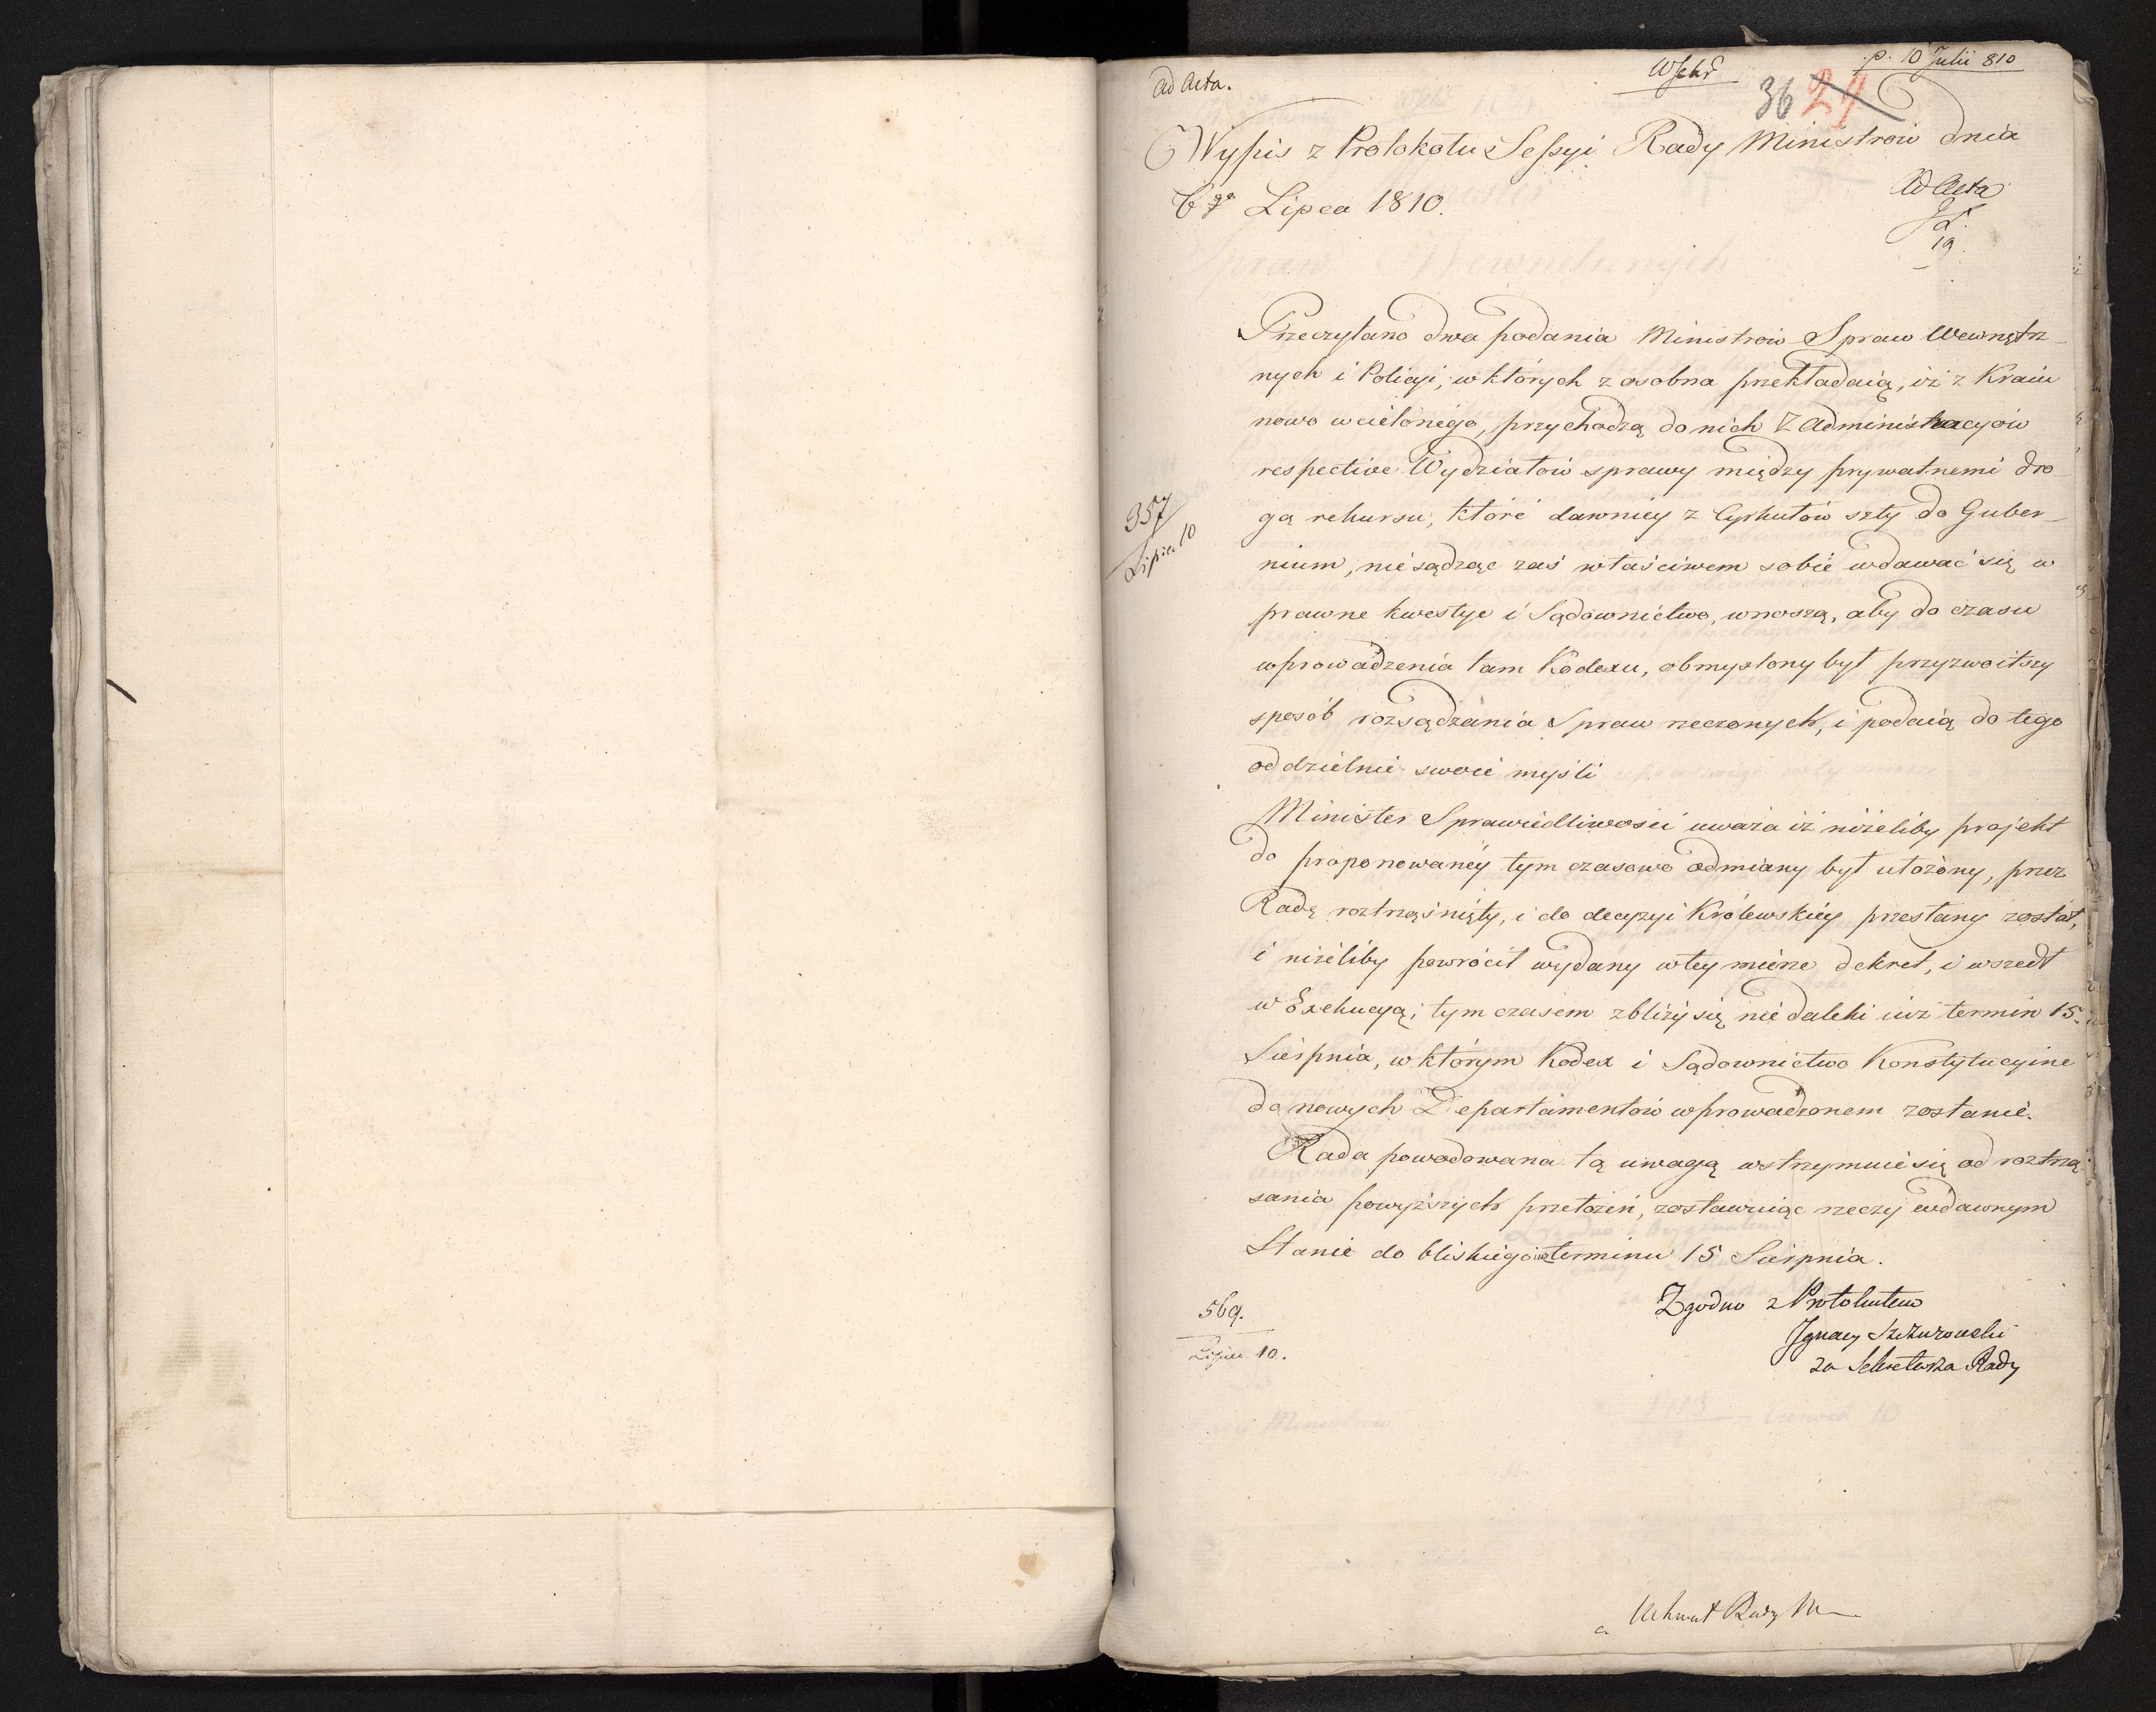 ad Acta.
p. 10 Julii 810
36 24
Wypis z Protokołu Sessyi Rady Ministrów dnia
6go Lipca 1810.
Ad Acta
19
Przeczytano dwa podania Ministrów Spraw Wewnętrz-
nych i Policyi, w których z osobna przekładaią, iż z Kraiu
nowo wcielonego, przychodzą do nich z Administracyiów
respective Wydziałów sprawy między prywatnemi dro-
gą rekursu, które dawniey z Cyrkułów szły do Guber-
nium, nie sądząc zaś właściwem sobie wdawać się w
prawne kwestye i Sądownictwo, wnoszą, aby do czasu
wprowadzenia tam Kodexu, obmyślony był przyzwoitszy
sposób rozsądzania Spraw rzeczonych, i podaią do tego
oddzielnie swoie myśli
Minister Sprawiedliwości uważa iż niżeliby projekt
do proponowanéy tym czasowo odmiany był ułożony, przez
Radę roztrząśnięty, i do decyzyi Królewskiéy przesłany został,
i niżeliby powrócił wydany w tey mierze dekret, i wszedł
w Exekucyą; tym czasem zbliży się nie daleki iuż termin 15.
Sierpnia, w którym Kodex i Sądownictwo Konstytucyine
do nowych Departamentów wprowadzonem zostanie.
Rada powodowana tą uwagą wstrzymuie się od roztrzą-
sania powyższych przełożeń, zostawuiąc rzeczy w dawnym
Stanie do bliskiego iuż terminu 15 Sierpnia.
357
Lipca 10
Zgodno z Protokułem
Ignacy Szczurowski
za Sekretarza Rady
569.
Lipca 10.
Rady M